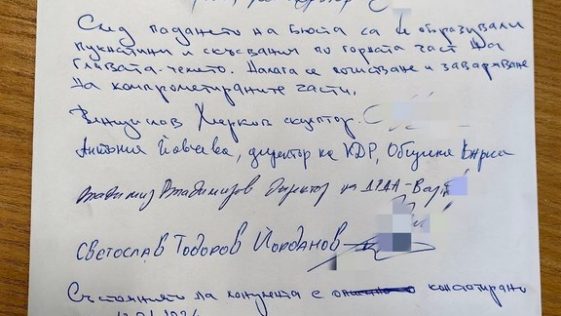 След падането на бюста са се образували
пукнатини и скъсвания по горната част на
главата-челото. Налага се почистване и заваряване
на компрометираните части.
Венцислав Марков скулптор.
Антония Йовчева, директор на КДР, Община Варна
Владимир Владимиров Директор на ДГДА-Вар
Светослав Тодоров Йорданов
Състоянието на монумента е констатирано